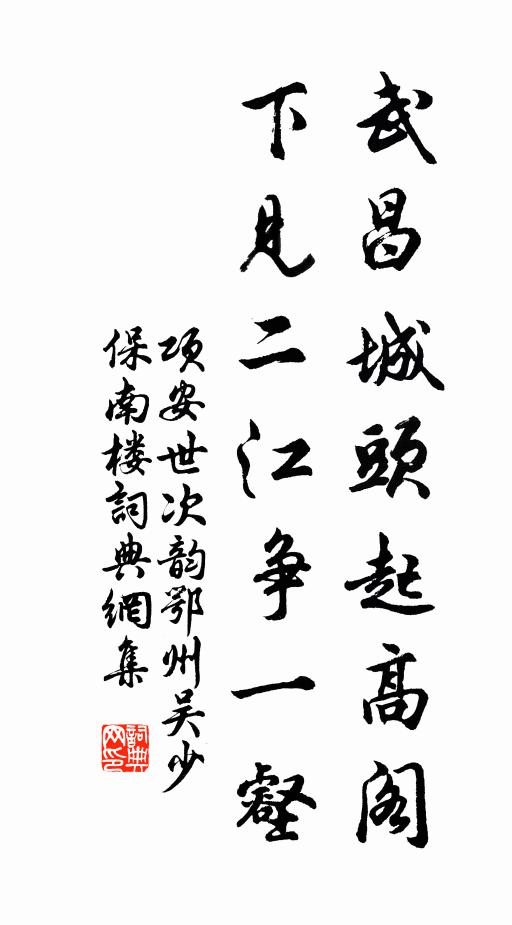 武昌城頭起高阁
下見二江争一壑
项安世次韵鄂州吴少
保南楼詞典網集
詞典
网印